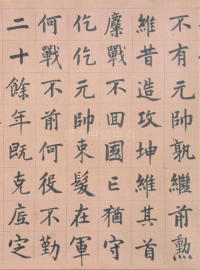 不有元帥孰繼前勲
維昔造攻坤維其首
鏖戰不回國亡猶守
仡仡元帥束髮在軍
何戰不前何役不勤
二十餘年既克底定